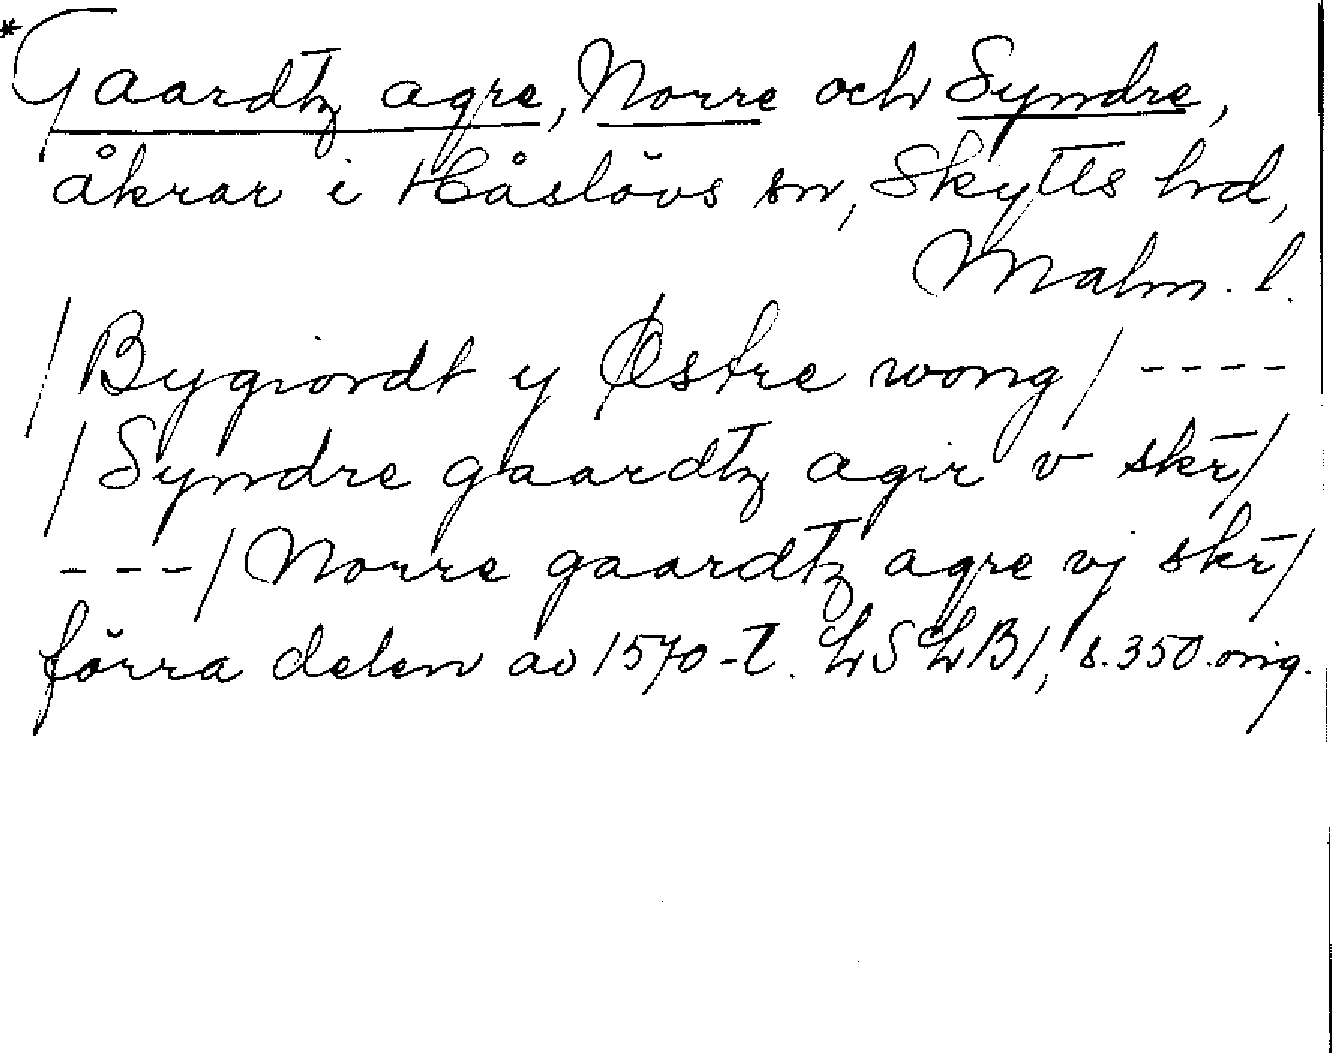 *Gaardtz agre, Norre och Syndre,
åkrar i Håslövs sn, Skytts hd,
Malm. l.
/Bygiordt y Østre wong/ ----
/Syndre gaardtz agir v skr̄/
---/Norre gaardtz agre vj skr̄/
förra delen av 1570-t. LSLB1, s.350.orig.